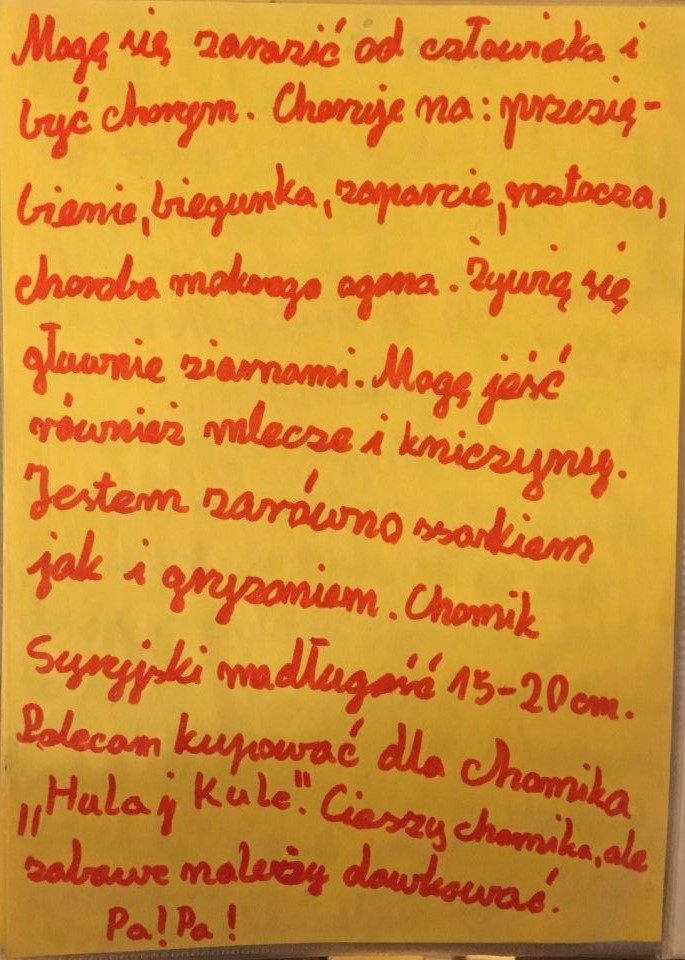 Mogę się zarazić od człowieka i
być chorym. Choruje na: przezię-
bienie, biegunka, zaparcie, roztocza,
choroba mokrego ogona. Żywię się
głównie ziarnami. Mogę jeść
również mlecze i kniczyny.
Jestem zarówno ssakiem
jak i gryzoniem. Chomik
Syryjski madługość 15-20cm.
Polecam kupować dla chomika
„Hulaj Kule". Cieszy chomika, ale
zabawe należy dawkować.
Pa! Pa!